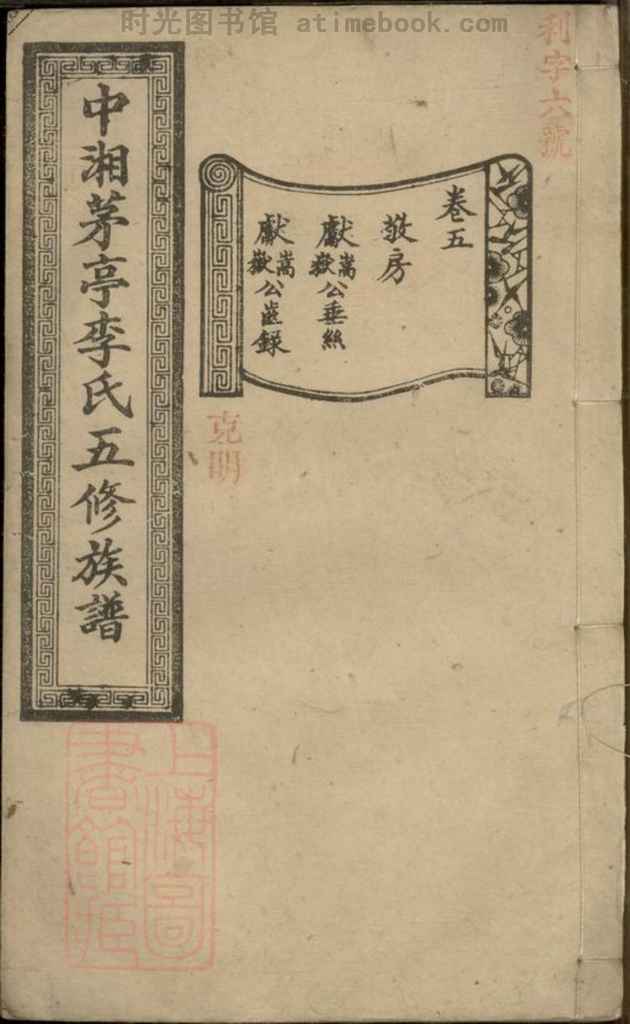 时光图书馆 atimebook.com
利字六號
卷五
敬房
獻嵩嶽公垂絲
獻嵩嶽公齒錄
克明
中湘茅亭李氏五修族譜
上海圖
書館藏